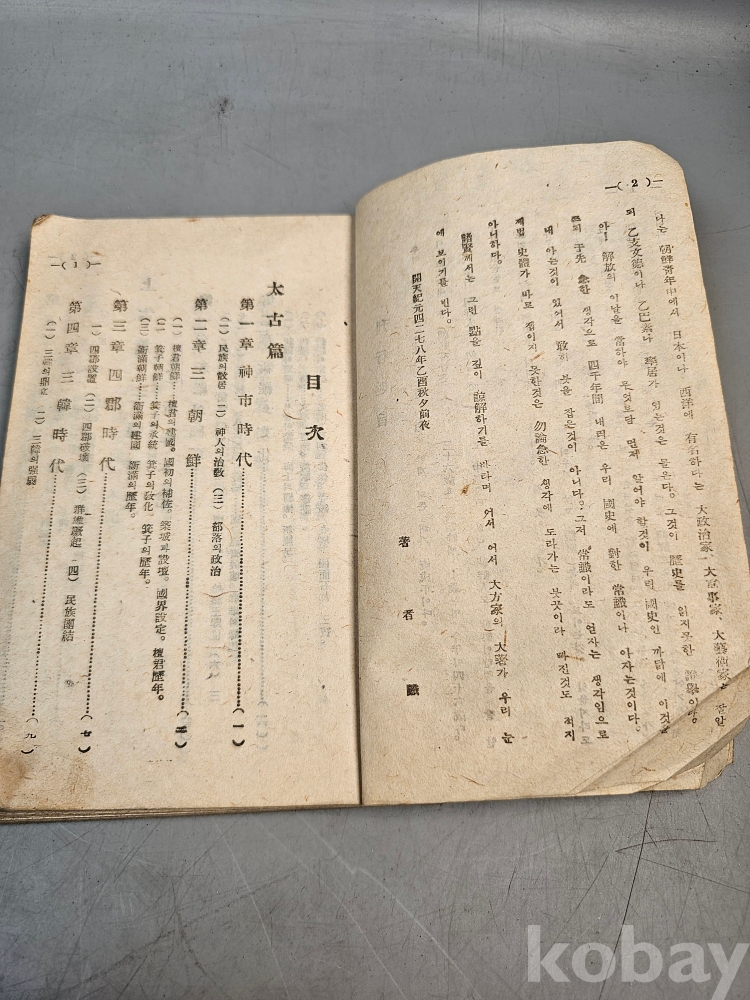 —( 2 )—
나는 朝鮮靑年中에서 日本이나 西洋에 有名하다는 大政治家、大軍事家、大藝術家는 잘알
되 乙支文德이나 乙巴素나 率居가 있는것은 몰은다。그것이 歷史를 읽지못한
아! 解放의 이날을 當하야 무엇보담 먼저 알어야 할것이 우리 國史인 까닭에 이것을
쓴되 于先 急한 생각으로 四千年間 내려온 우리 國史에 對한 常識이나 아자는것이다。
내 아는것이 있어서 敢히 붓을 잡은것이 아니다? 그저 常識이라도 얻자는 생각임으로
제법 史體가 바로 잡이지 못한것은 勿論急한 생각에 도라가는 붓끗이라 빠진것도 적지
아니하다。
諸賢께서는 그런 點을 깊이 諒解하기를 바라며 어서 어서 大方家의 大著가 우리 눈
에 보이기를 빈다。
開天紀元四二七八年乙酉秋夕前衣
著者識
—( 1 )—
目次
太古篇
第一章 神市時代 (一)
(一) 民族의 散居 (二) 神人의 治敎 (三) 部落의 政治
第二章 三朝鮮
(一) 檀君朝鮮 檀君의 建國。國初의 補佐。築城과 設壇。國界設定。檀君歷年。
(二) 箕子朝鮮 箕子의 承統 箕子의 敎化 箕子의 歷年。
(三) 衛滿朝鮮 衛滿의 建國 衛滿의 歷年。
第三章 四郡時代 (七)
(一) 四郡設置 (二) 四郡破壞 (三) 群雄蹶起 (四) 民族團結
第四章 三韓時代 (九)
(一) 三韓의 鼎立 (二) 三韓의 强弱
kobay